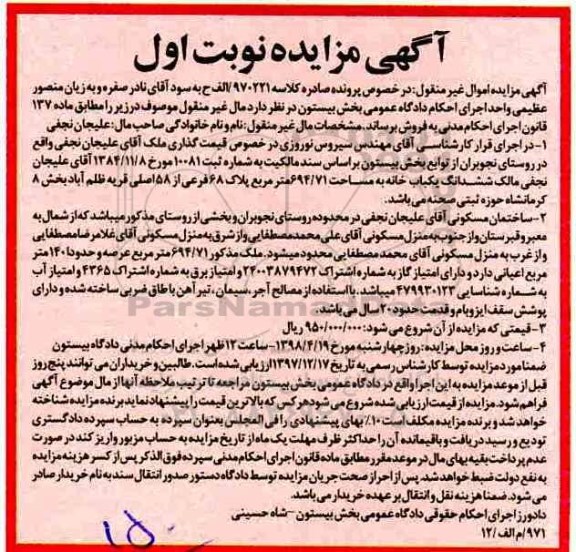 آگهی مزایده نوبت اول
آگهی مزایده اموال غیر منقول: در خصوص پرونده صادره کلاسه ۹۷۰۲۲۱/الف ح به سود آقای نادر صفره و به زیان منصور
عظیمی واحد اجرای احکام دادگاه عمومی بخش بیستون در نظر دارد مال غیر منقول موصوف در زیر را مطابق ماده ۱۳۷
قانون اجرای احکام مدنی به فروش برساند. مشخصات مال غیر منقول: نام و نام خانوادگی صاحب مال: علیجان نجفی
۱- در اجرای قرار کارشناسی آقای مهندس سیروس نوروزی در خصوص قیمت گذاری ملک آقای علیجان نجفی واقع
در روستای نجویران از توابع بخش بیستون بر اساس سند مالکیت به شماره ثبت ۱۰۰۸۱ مورخ ۱۳۸۴/۱۱/۸ آقای علیجان
نجفی مالک ششدانگ یکباب خانه به مساحت ۶۹۴/۷۱ متر مربع پلاک ۶۸ فرعی از ۵۸ اصلی قریه ظلم آباد بخش ۸
کرمانشاه حوزه ثبتی صحنه می باشد.
۲- ساختمان مسکونی آقای علیجان نجفی در محدوده روستای نجویران و بخشی از روستای مذکور میباشد که از شمال به
معبر و قبرستان و از جنوب به منزل مسکونی آقای علی محمد مصطفایی و از شرق به منزل مسکونی آقای غلامرضا مصطفایی
و از غرب به منزل مسکونی آقای محمد مصطفایی محدود میشود. ملک مذکور ۶۹۴/۷۱ متر مربع عرصه و حدودا ۱۴۰ متر
مربع اعیانی دارد و دارای امتیاز گاز به شماره اشتراک ۲۴۰۰۳۸۷۹۴۷۲ و امتیاز برق به شماره اشتراک ۴۳۶۵ و امتیاز آب
به شماره شناسایی ۴۷۹۹۳۰۱۲۲ میباشد. با استفاده از مصالح آجر، سیمان، تیر آهن با طاق ضربی ساخته شده و دارای
پوشش سقف ایزوبام و قدمت حدود ۲۰ سال می باشد.
۳- قیمتی که مزایده از آن شروع می شود: ۹۵۰/۰۰۰/۰۰۰ ریال
۴- ساعت و روز محل مزایده: روز چهارشنبه مورخ ۱۳۹۸/۴/۱۹- ساعت ۱۲ ظهر اجرای احکام مدنی دادگاه بیستون
ضمنا مورد مزایده توسط کارشناس رسمی به تاریخ ۱۳۹۷/۱۲/۱۷ ارزیابی شده است. طالبین و خریداران می توانند پنج روز
قبل از موعد مزایده به این اجرا واقع در دادگاه عمومی بخش بیستون مراجعه تا ترتیب ملاحظه آنها از مال موضوع آگهی
فراهم شود. مزایده از قیمت ارزیابی شده شروع می شود هر کس که بالاترین قیمت را پیشنهاد نماید برنده مزایده شناخته
خواهد شد و برنده مزایده مکلف است ۱۰٪ بهای پیشنهادی را فی المجلس بعنوان سپرده به حساب سپرده دادگستری
تودیع و رسید دریافت و باقیمانده آن را حداکثر ظرف مهلت یک ماه از تاریخ مزایده به حساب مزبور واریز کند در صورت
عدم پرداخت بقیه بهای مال در موعد مقرر مطابق ماده قانون اجرای احکام مدنی سپرده فوق الذکر پس از کسر هزینه مزایده
به نفع دولت ضبط خواهد شد. پس از احراز صحت جریان مزایده توسط دادگاه دستور صدور انتقال سند به نام خریدار صادر
می شود. ضمنا هزینه نقل و انتقال بر عهده خریدار می باشد.
دادورز اجرای احکام حقوقی دادگاه عمومی بخش بیستون - شاه حسینی
۹۷۱/م الف/۱۲